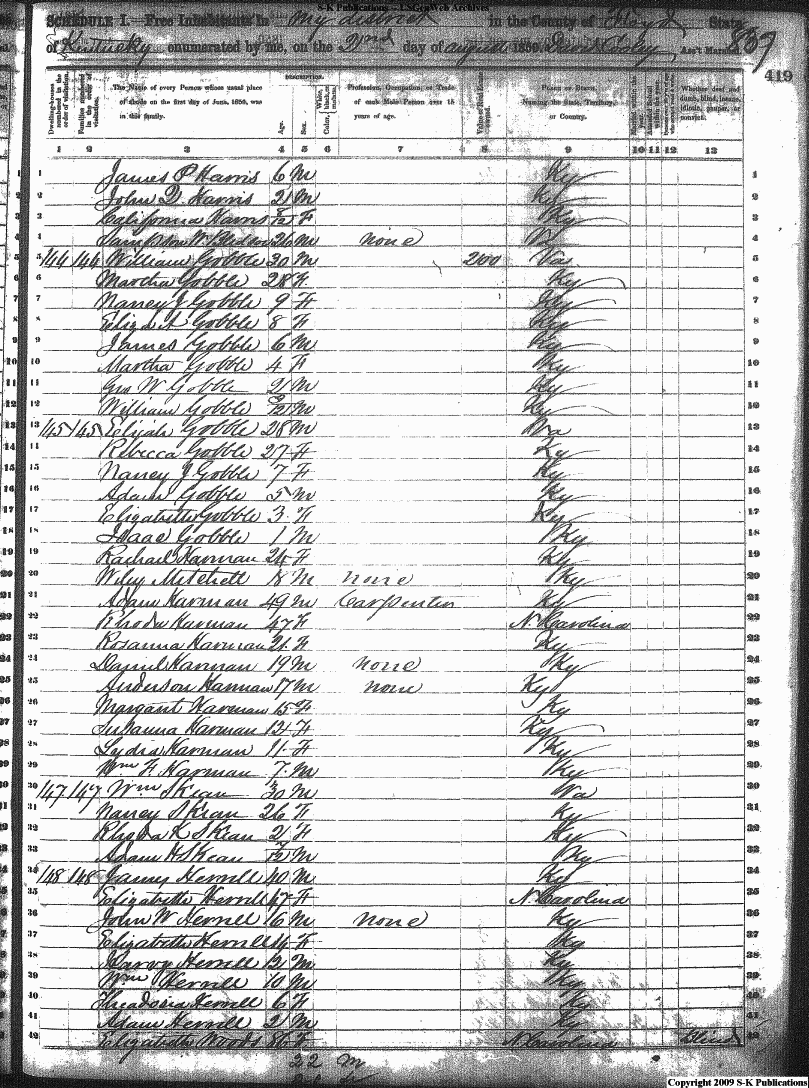 S-K Publications - USGenWeb Archives
SCHEDULE I.—Free Inhabitants in My district in the County of Floyd State
of Kentucky enumerated by me, on the 2nd day of August 1850. Ass't Marshal.
419
DESCRIPTION.
Dwelling-houses numbered in the order of visitation. Families numbered in the order of visitation. The Name of every Person whose usual place of abode on the first day of June, 1850, was in this family. Age. Sex. Color, White, black, or mulatto. Profession, Occupation, or Trade of each Male Person over 15 years of age. Value of Real Estate owned. PLACE OF BIRTH. Naming the State, Territory, or Country. Married within the year. Whether deaf and dumb, blind, insane, idiotic, pauper, or convict.
1 2 3 4 5 6 7 8 9 10 11 12 13
1 James P Harris 6 M Ky 1
2 John D. Harris 2 M Ky 2
3 California Harris /12 F Ky 3
4 26 M none 4
5 144 144 William Gobble 30 M 200 Va 5
6 Martha Gobble 28 F Ky 6
7 Nancy J Gobble 9 F Ky 7
8 Eliza A Gobble 8 F Ky 8
9 James Gobble 6 M Ky 9
10 Martha Gobble 4 F Ky 10
11 Geo W Gobble 2 M Ky 11
12 William Gobble /12 M Ky 12
13 145 145 Elijah Gobble 28 M Va 13
14 Rebecca Gobble 27 F Ky 14
15 Nancy J Gobble 7 F Ky 15
16 Adam Gobble 5 M Ky 16
17 Elizabeth Gobble 3 F Ky 17
18 Isaac Gobble 1 M Ky 18
19 Rachael Harman 24 F Ky 19
20 Wiley Mitchell 18 M none Ky 20
21 Adam Harman 49 M Carpenter Ky 21
22 Rhoda Harman 47 F N. Carolina 22
23 Rosanna Harman 21 F Ky 23
24 Daniel Harman 19 M none Ky 24
25 Anderson Harman 17 M none Ky 25
26 Margaret Harman 15 F Ky 26
27 Susanna Harman 13 F Ky 27
28 Lydia Harman 11 F Ky 28
29 Wm F. Harman 7 M Ky 29
30 147 147 Wm Skean 30 M Va 30
31 Nancy Skean 26 F Ky 31
32 Rhoda Skean 2 F Ky 32
33 Adam H Skean /12 M Ky 33
34 148 148 Herrell 40 M Ky 34
35 Elizabeth Herrell 47 F N. Carolina 35
36 John W Herrell 16 M none Ky 36
37 Elizabeth Herrell 14 F Ky 37
38 Harvy Herrell 12 M Ky 38
39 Wm Herrell 10 M Ky 39
40 Theadosia Herrell 6 F Ky 40
41 Adam Herrell 2 M Ky 41
42 Elizabeth Woods 86 F N. Carolina Blind 42
22 M
Copyright 2009 S-K Publications